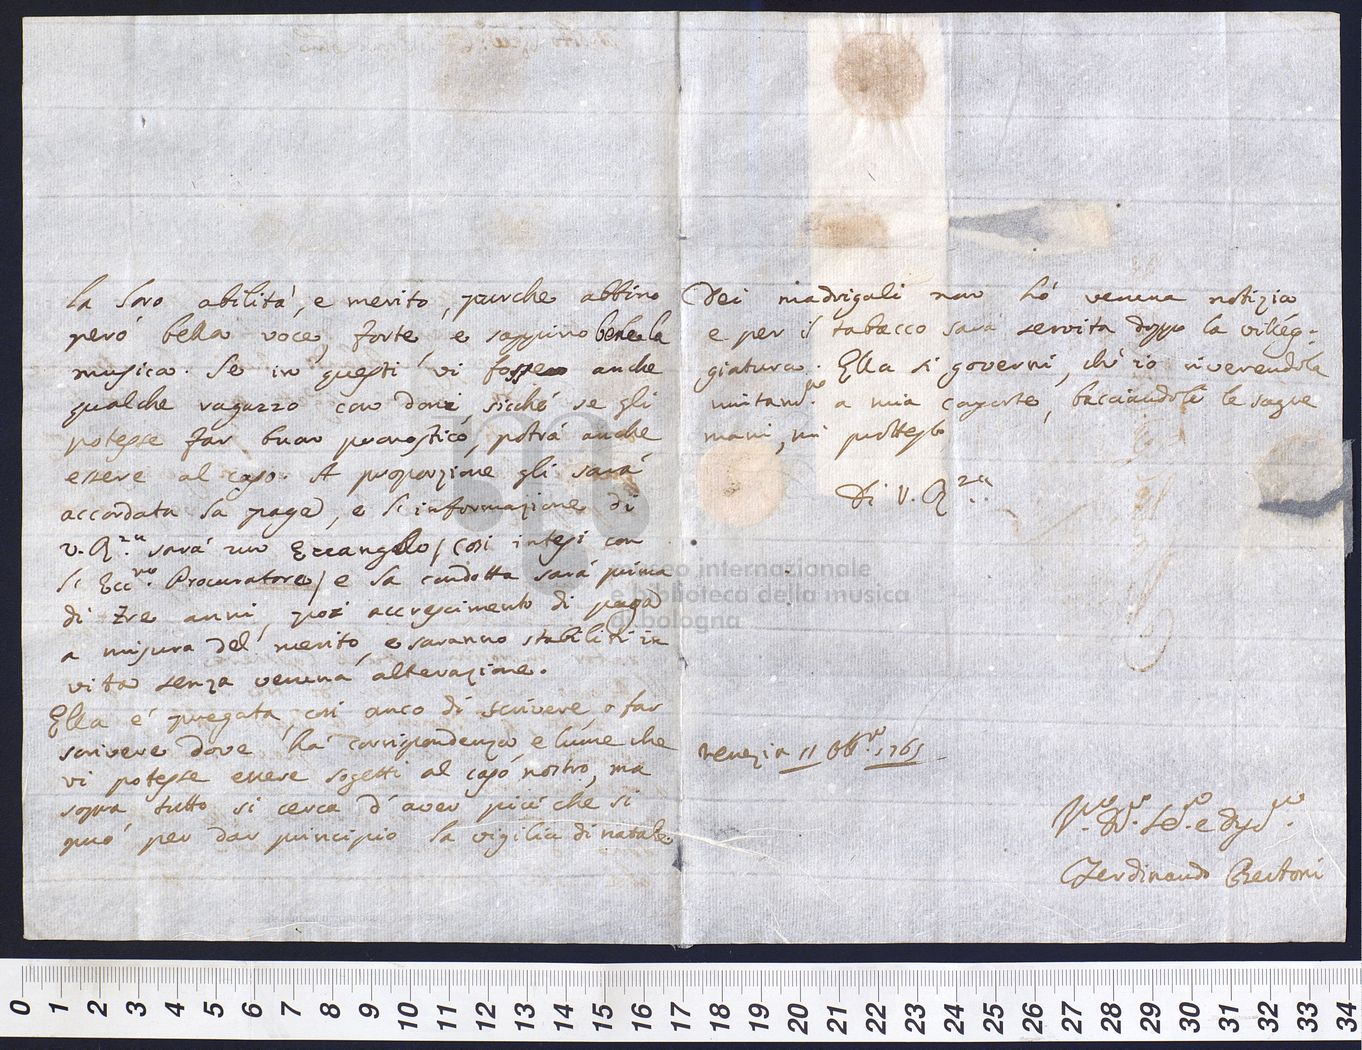 la loro abilità, e merito, purche abbino
però bella voce, forte e sappino bene la
musica. Se in questi vi fosse anche
qualche ragazzo con doni, sicché se gli
potesse far buon pronostico, potrà anche
essere al caso. A proporzione gli sarà
accordata la paga, e l'informazione di
V. R.za sarà un Eccangelo / così intesi con
l'Ecc.mo Procuratore / e la condotta sarà prima
di tre anni, poi accrescimento di paga
a misura del merito, e saranno stabiliti in
vita senza veruna alterazione.
Ella è pregata così anco di scrivere o far
scrivere dove ha corrispondenza, e lume che
vi potesse essere sogetti al caso nostro, ma
sopra tutto si cerca d'aver più che si
può per dar principio la vigilia di natale
Dei madrigali non hò veruna notizia
e per il tabacco sarà servita doppo la villeg-
giatura. Ella si governi, ch'io riverendola
unitam.te a mia consorte, bacciandoli le sagre
mani, mi protesto
Di V. R.za
Venezia 11 Ott.e 1761
Ferdinando Bertoni
museo internazionale
e biblioteca della musica
di bologna
0 1 2 3 4 5 6 7 8 9 10 11 12 13 14 15 16 17 18 19 20 21 22 23 24 25 26 27 28 29 30 31 32 33 34